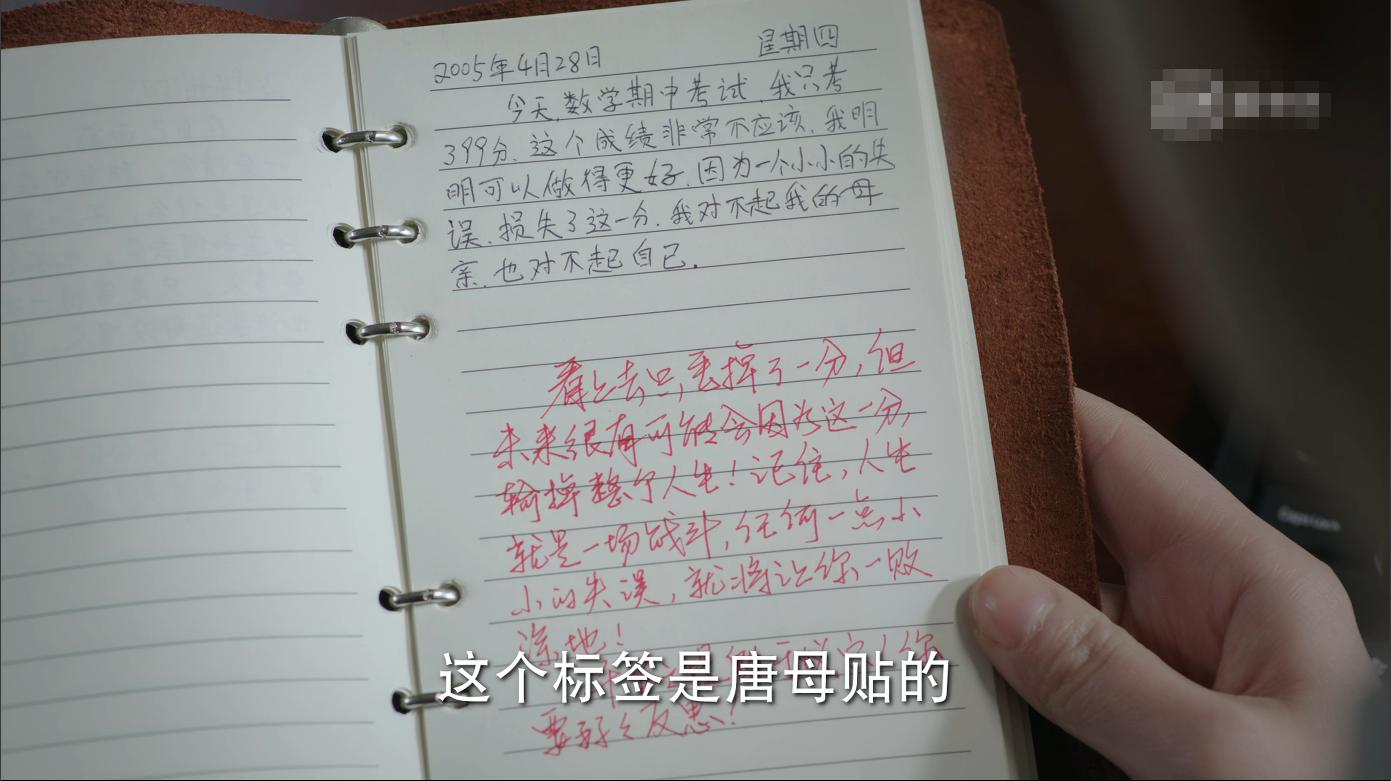 2005年4月28日 星期四
今天,数学期中考试,我只考
399分.这个成绩非常不应该.我明
明可以做得更好.因为一个小小的失
误.损失了这一分.我对不起我的母
亲.也对不起自己.
看上去只,丢掉了一分,但
未来很有可能会因为这一分,
输掉整个人生!记住,人生
就是一场战斗,任何一点小
小的失误,就将让你一败
涂地!
这个标签是唐母贴的
要好好反思!